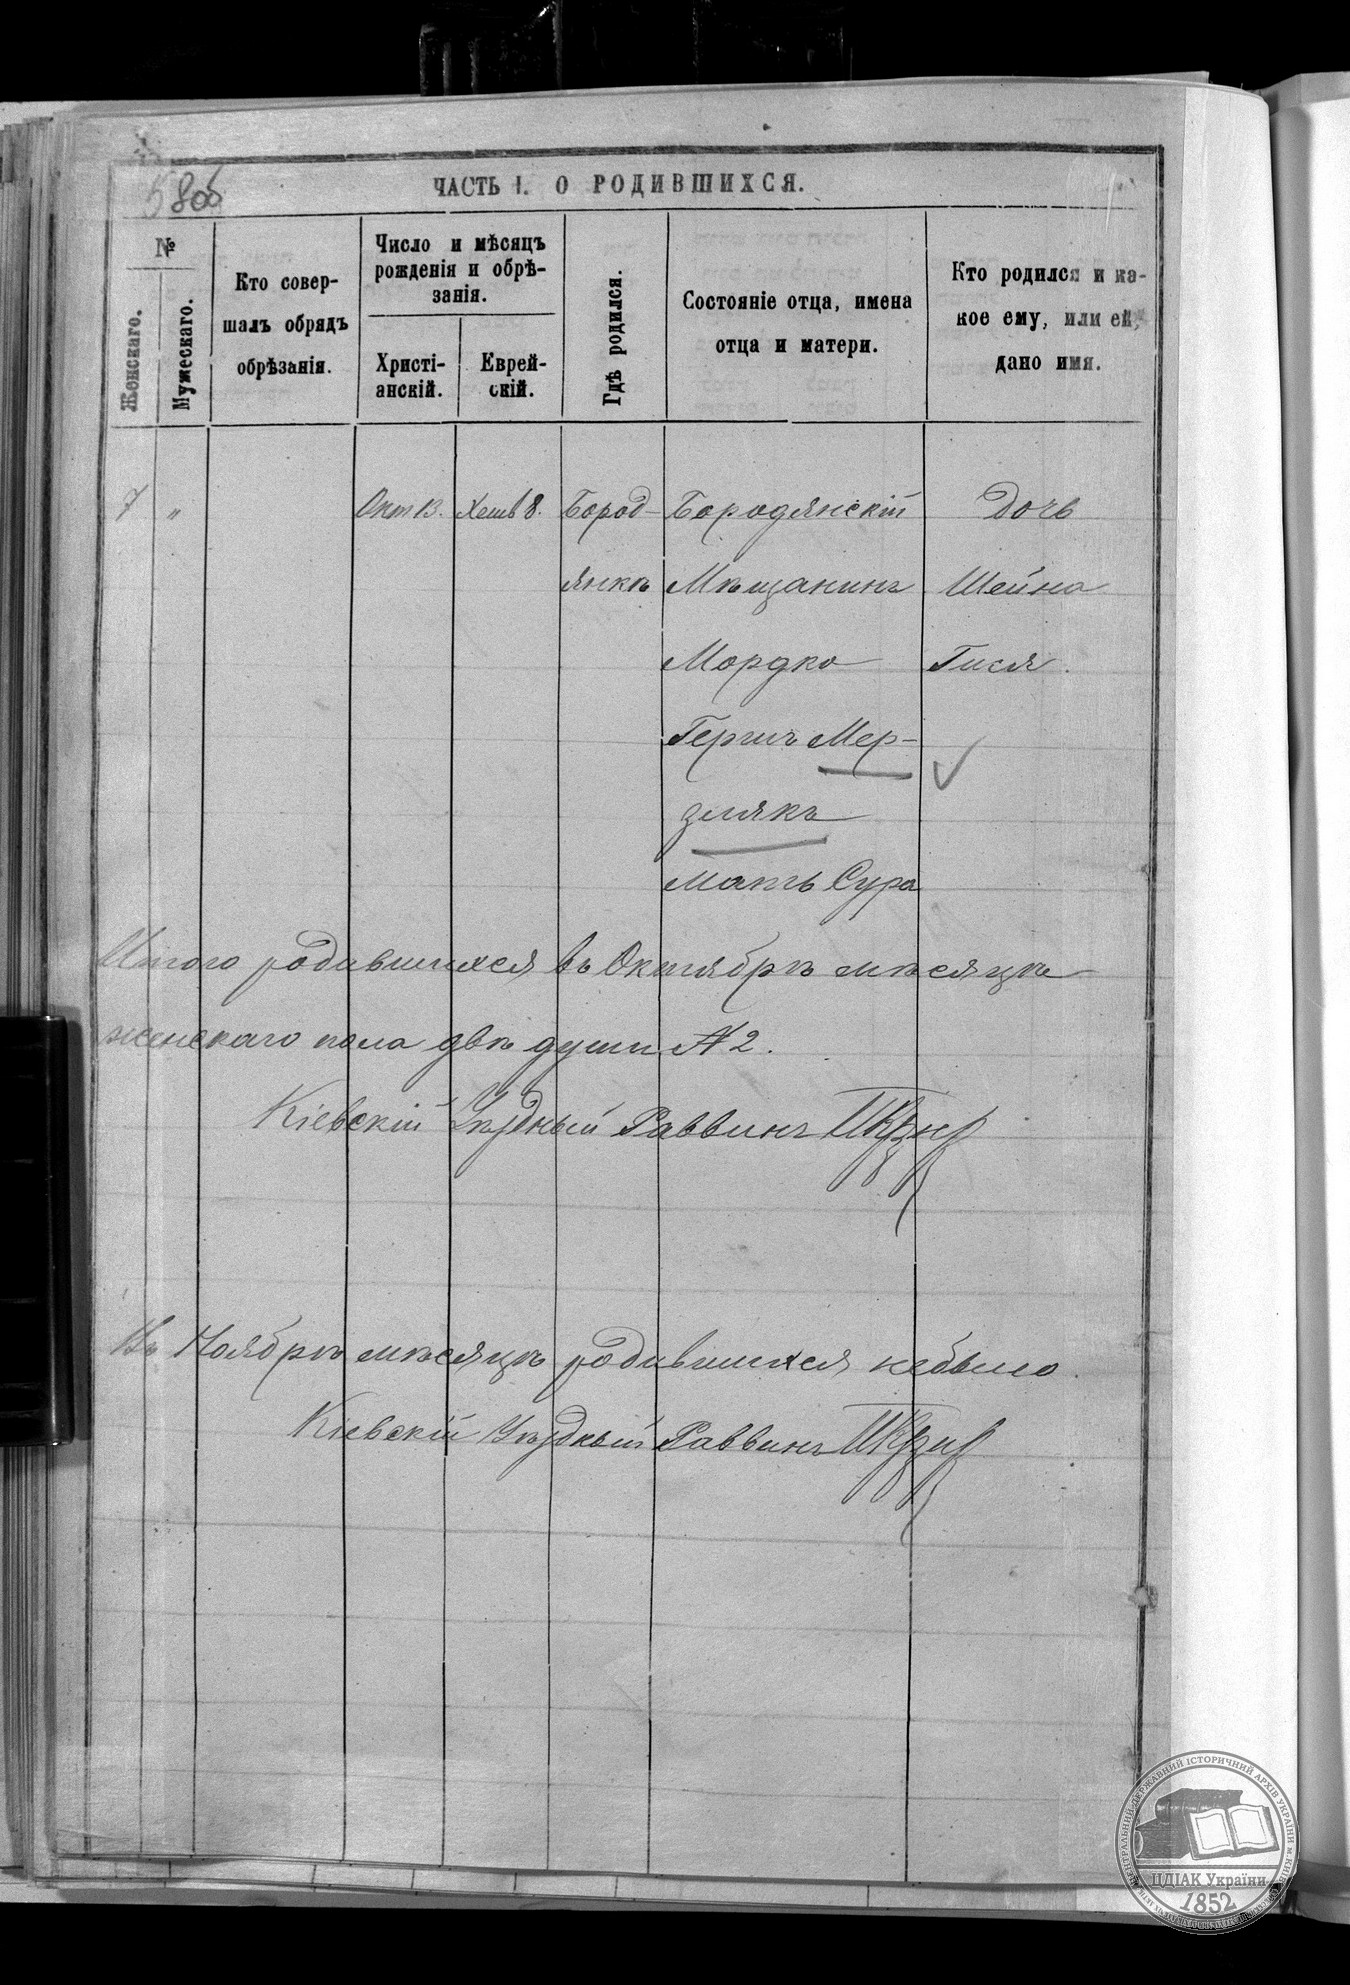 58об
ЧАСТЬ I. О РОДИВШИХСЯ.
№
Женскаго.
Мужескаго.
Кто совер-
шалъ обрядъ
обрѣзанія.
Число и мѣсяцъ
рожденія и обрѣ-
занія.
Христі-
анскій.
Еврей-
скій.
Гдѣ родился.
Состояніе отца, имена
отца и матери.
Кто родился и ка-
кое ему, или ей,
дано имя.
7 " Окт 13. Хешв 8. Бород- Бородянскій Дочь
янкѣ Мѣщанинъ Шейна
Мордко Гися.
Гершъ Мер-
злякъ
Мать Сура
Итого родившихся въ Октябрѣ мѣсяцѣ
женскаго пола двѣ души № 2.
Кіевскій Уѣздный Раввинъ
Въ Ноябрѣ мѣсяцѣ родившихся небыло.
Кіевскій Уѣздный Раввинъ
ЦЕНТРАЛЬНИЙ ДЕРЖАВНИЙ ІСТОРИЧНИЙ АРХІВ УКРАЇНИ М. КИЇВ
ЦДІАК України
1852